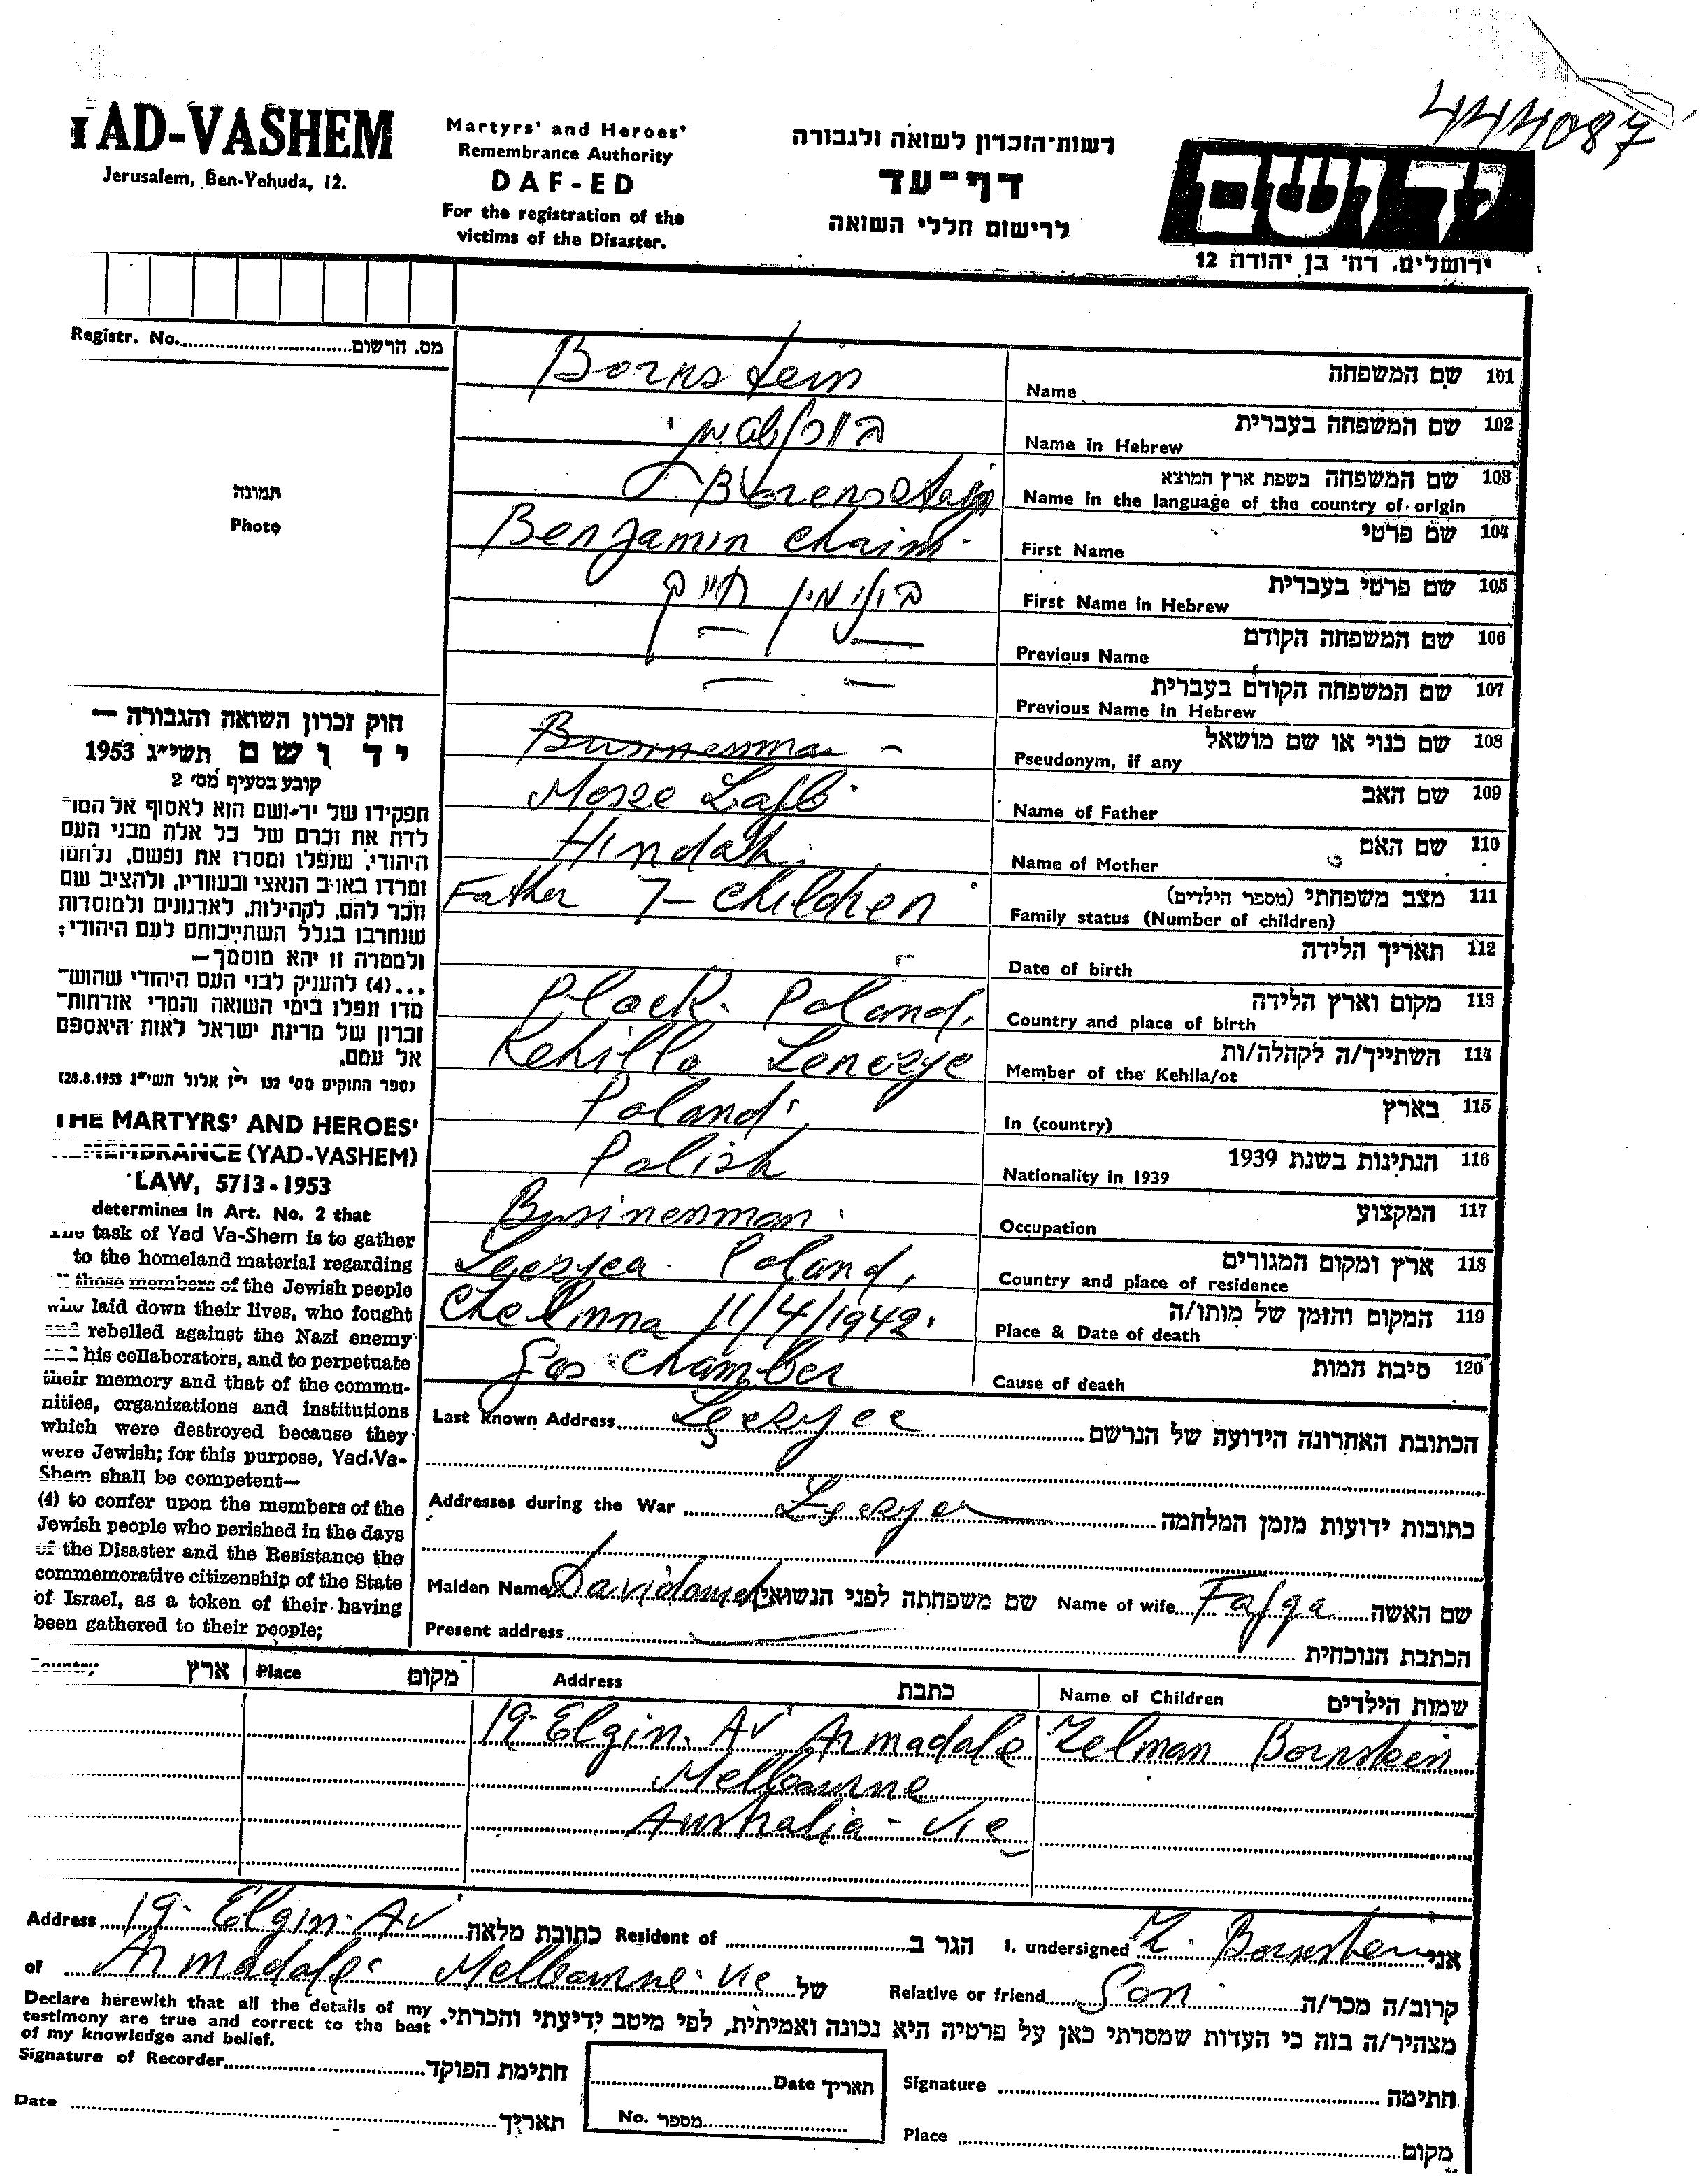 444087
YAD-VASHEM
Jerusalem, Ben-Yehuda, 12.
Martyrs' and Heroes'
Remembrance Authority
DAF-ED
For the registration of the
victims of the Disaster.
רשות-הזכרון לשואה ולגבורה
דף-עד
לרישום חללי השואה
יד ושם
ירושלים, רח' בן יהודה 12
Registr. No. מס. הרשום
תמונה
Photo
Bornstein Name שם המשפחה 101
Name in Hebrew שם המשפחה בעברית 102
Borensztajn Name in the language of the country of origin שם המשפחה בשפת ארץ המוצא 103
Benjamin Chaim First Name שם פרטי 104
בנימין חיים First Name in Hebrew שם פרטי בעברית 105
— — Previous Name שם המשפחה הקודם 106
— — Previous Name in Hebrew שם המשפחה הקודם בעברית 107
Businessma - Pseudonym, if any שם כנוי או שם מושאל 108
Mosze Lajb Name of Father שם האב 109
Hindah Name of Mother שם האם 110
Father 7 - Children Family status (Number of children) מצב משפחתי (מספר הילדים) 111
Date of birth תאריך הלידה 112
Plock. Poland. Country and place of birth מקום וארץ הלידה 113
Kehilla Lenczye Member of the Kehila/ot השתייך/ה לקהלה/ות 114
Poland In (country) בארץ 115
Polish Nationality in 1939 הנתינות בשנת 1939 116
Businessman Occupation המקצוע 117
Leczyca. Poland, Country and place of residence ארץ ומקום המגורים 118
Chelmna 11/4/1942. Place & Date of death המקום והזמן של מותו/ה 119
Gas chamber Cause of death סיבת המות 120
חוק זכרון השואה והגבורה —
יד ושם תשי"ג 1953
קובע בסעיף מס' 2
תפקידו של יד-ושם הוא לאסוף אל המו-
לדת את זכרם של כל אלה מבני העם
היהודי, שנפלו ומסרו את נפשם, נלחמו
ומרדו באויב הנאצי ובעוזריו, ולהציב שם
וזכר להם, לקהילות, לארגונים ולמוסדות
שנחרבו בגלל השתייכותם לעם היהודי;
ולמטרה זו יהא מוסמך—
...(4) להעניק לבני העם היהודי שהוש-
מדו ונפלו בימי השואה והמרי אזרחות-
זכרון של מדינת ישראל לאות היאספם
אל עמם.
(ספר החוקים מס' 132 י"ז אלול תשי"ג 28.8.1953)
THE MARTYRS' AND HEROES'
REMEMBRANCE (YAD-VASHEM)
LAW, 5713-1953
determines in Art. No. 2 that
The task of Yad Va-Shem is to gather
to the homeland material regarding
all those members of the Jewish people
who laid down their lives, who fought
and rebelled against the Nazi enemy
and his collaborators, and to perpetuate
their memory and that of the commu-
nities, organizations and institutions
which were destroyed because they
were Jewish; for this purpose, Yad-Va-
Shem shall be competent—
(4) to confer upon the members of the
Jewish people who perished in the days
of the Disaster and the Resistance the
commemorative citizenship of the State
of Israel, as a token of their having
been gathered to their people;
Last known Address Leczyce הכתובת האחרונה הידועה של הנרשם
Addresses during the War Leczyca כתובות ידועות מזמן המלחמה
Maiden Name שם משפחתה לפני הנשואין Name of wife Fajga שם האשה
Present address הכתבת הנוכחית
Country ארץ Place מקום Address כתבת Name of Children שמות הילדים
19 Elgin. Av Armadale Zelman Bornstein
Melbourne
Australia - Vic
Address 19 Elgin. Av כתובת מלאה Resident of הגר ב I. undersigned Z. Bornstein אני
of Armadale Melbourne. Vic של Relative or friend Son קרוב/ה מכר/ה
Declare herewith that all the details of my
testimony are true and correct to the best
of my knowledge and belief.
מצהיר/ה בזה כי העדות שמסרתי כאן על פרטיה היא נכונה ואמיתית, לפי מיטב ידיעתי והכרתי.
Signature of Recorder חתימת הפוקד Date תאריך Signature חתימה
Date תאריך No. מספר Place מקום